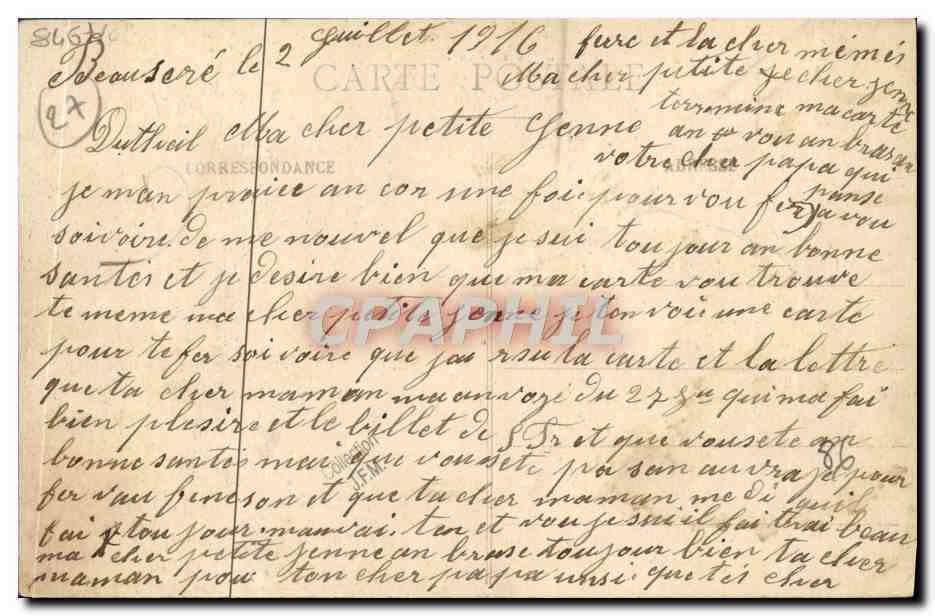 Beauseré le 2 Juillet 1916
CARTE POSTALE
Dutheil Ma cher petite Jenne
CORRESPONDANCE
ADRESSE
je man praice an cor une foi pour vou fer
soivoire de me nouvel que je sui toujour an bonne
santés et je desire bien que ma carte vou trouve
te meme ma cher petite jenne je tonvoi une carte
pour te fer soivoire que jai rsu la carte et la lettre
que ta cher maman ma anvoze du 27 qui ma fai
bien plesire et le billet de 5 Fr et que vousete an
bonne santes mai que vousete pa san auvraje pour
fer vau feneson et que ta cher maman me di quil
fai toujour mauvai ten et vou je sui il fai trai beau
ma cher petite jenne an brase toujour bien ta cher
maman pour ton cher papa unsi que tés cher
frere et la cher mémés
Ma cher petite je cher jenne
terremine ma carte
an vou an brasan
votre cher papa qui
panse
a vou
8464
27
86
Collection
J.F.M.
CPAPHIL